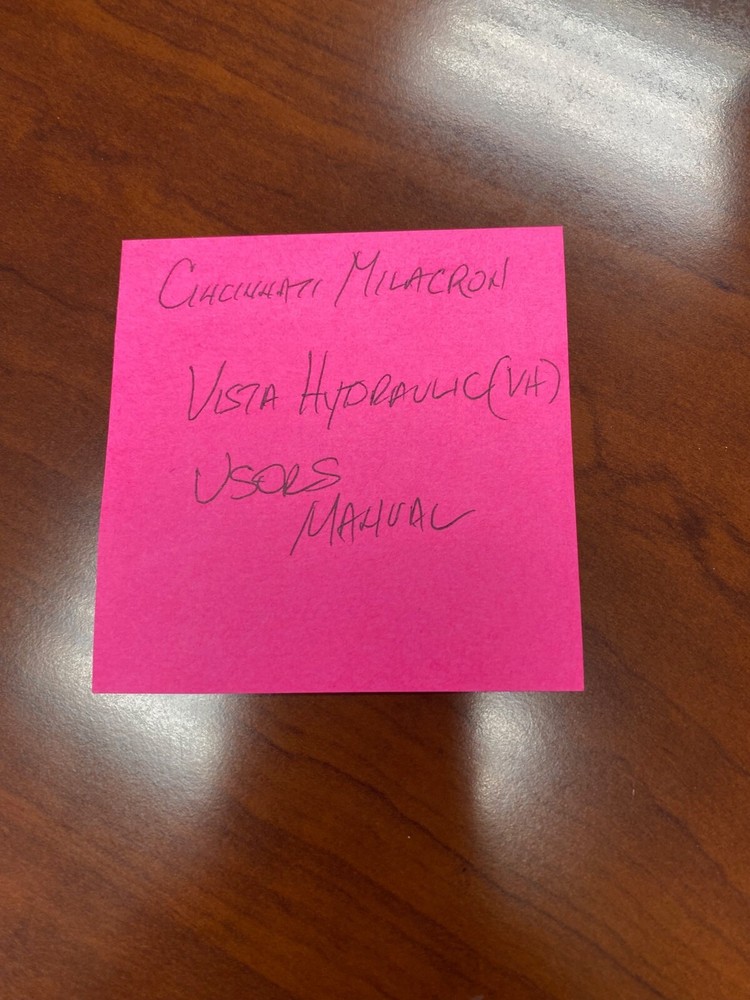 CINCINNATI MILACRON
VISTA HYDRAULIC (VH)
USERS
MANUAL